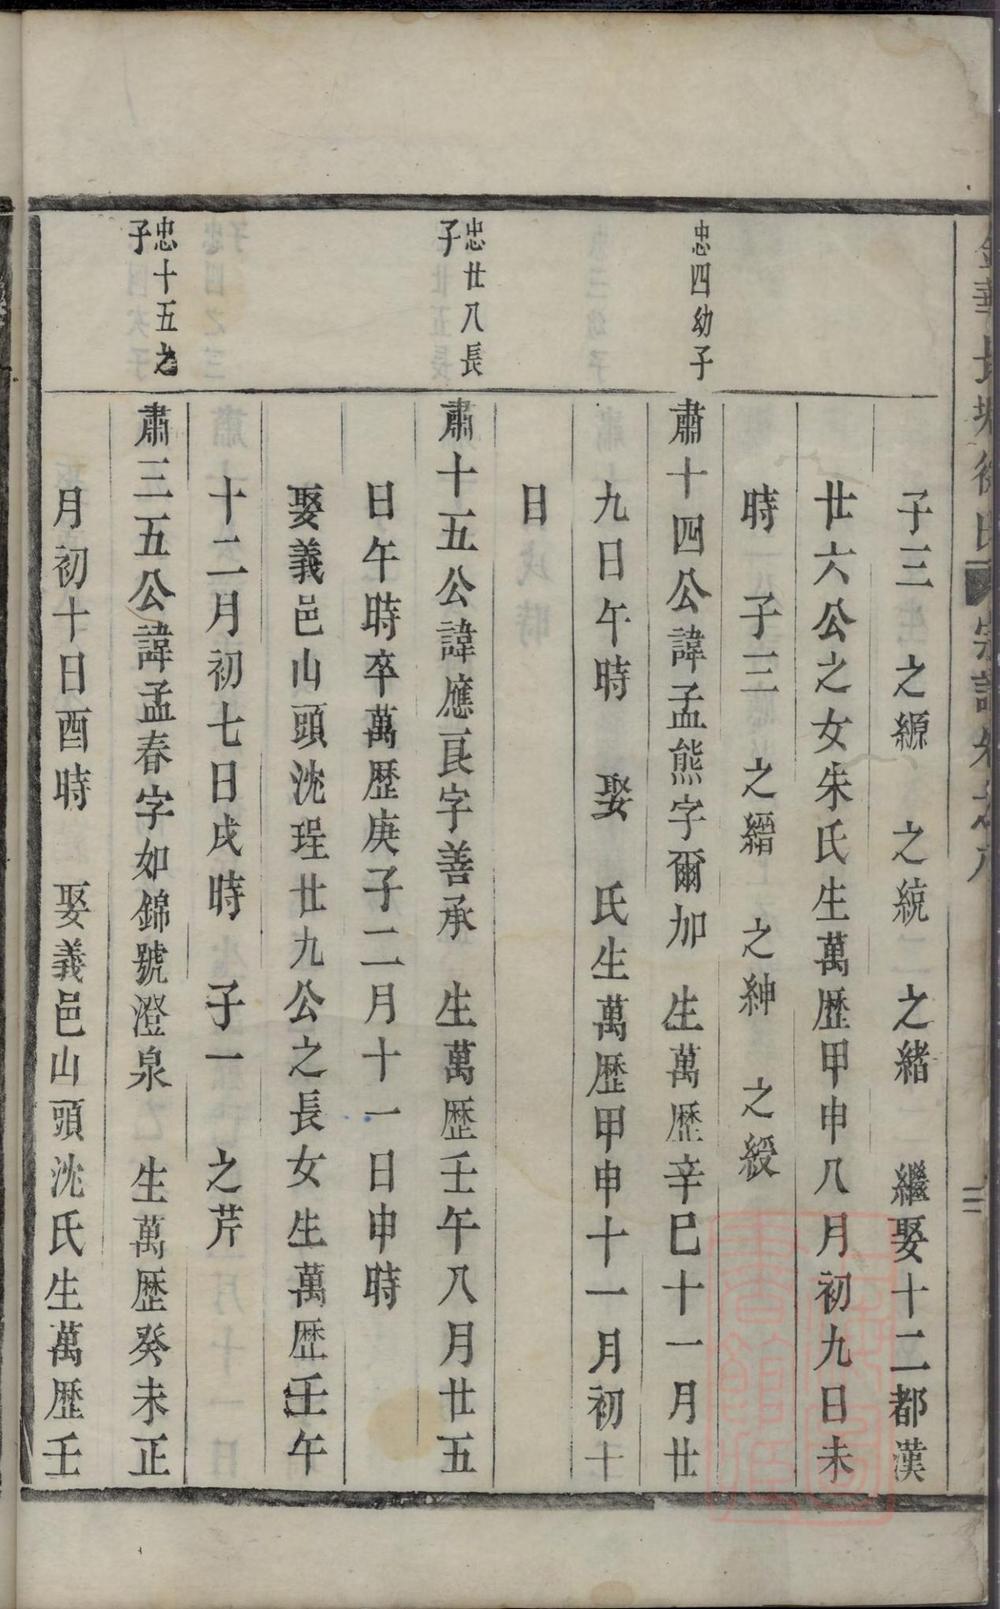 子三 之縣 之統 之緒 繼娶十二都漢
廿六公之女朱氏生萬歷甲申八月初九日未
時 子三 之縉 之紳 之綬
忠四幼子
肅十四公諱孟熊字爾加 生萬歷辛巳十一月廿
九日午時 娶 氏生萬歷甲申十一月初十
日
忠廿八長
子
肅十五公諱應良字善承 生萬歷壬午八月廿五
日午時卒萬歷庚子二月十一日申時
娶義邑山頭沈珵廿九公之長女生萬歷壬午
十二月初七日戌時 子一 之芹
忠十五之
子
肅三五公諱孟春字如錦號澄泉 生萬歷癸未正
月初十日酉時 娶義邑山頭沈氏生萬歷壬